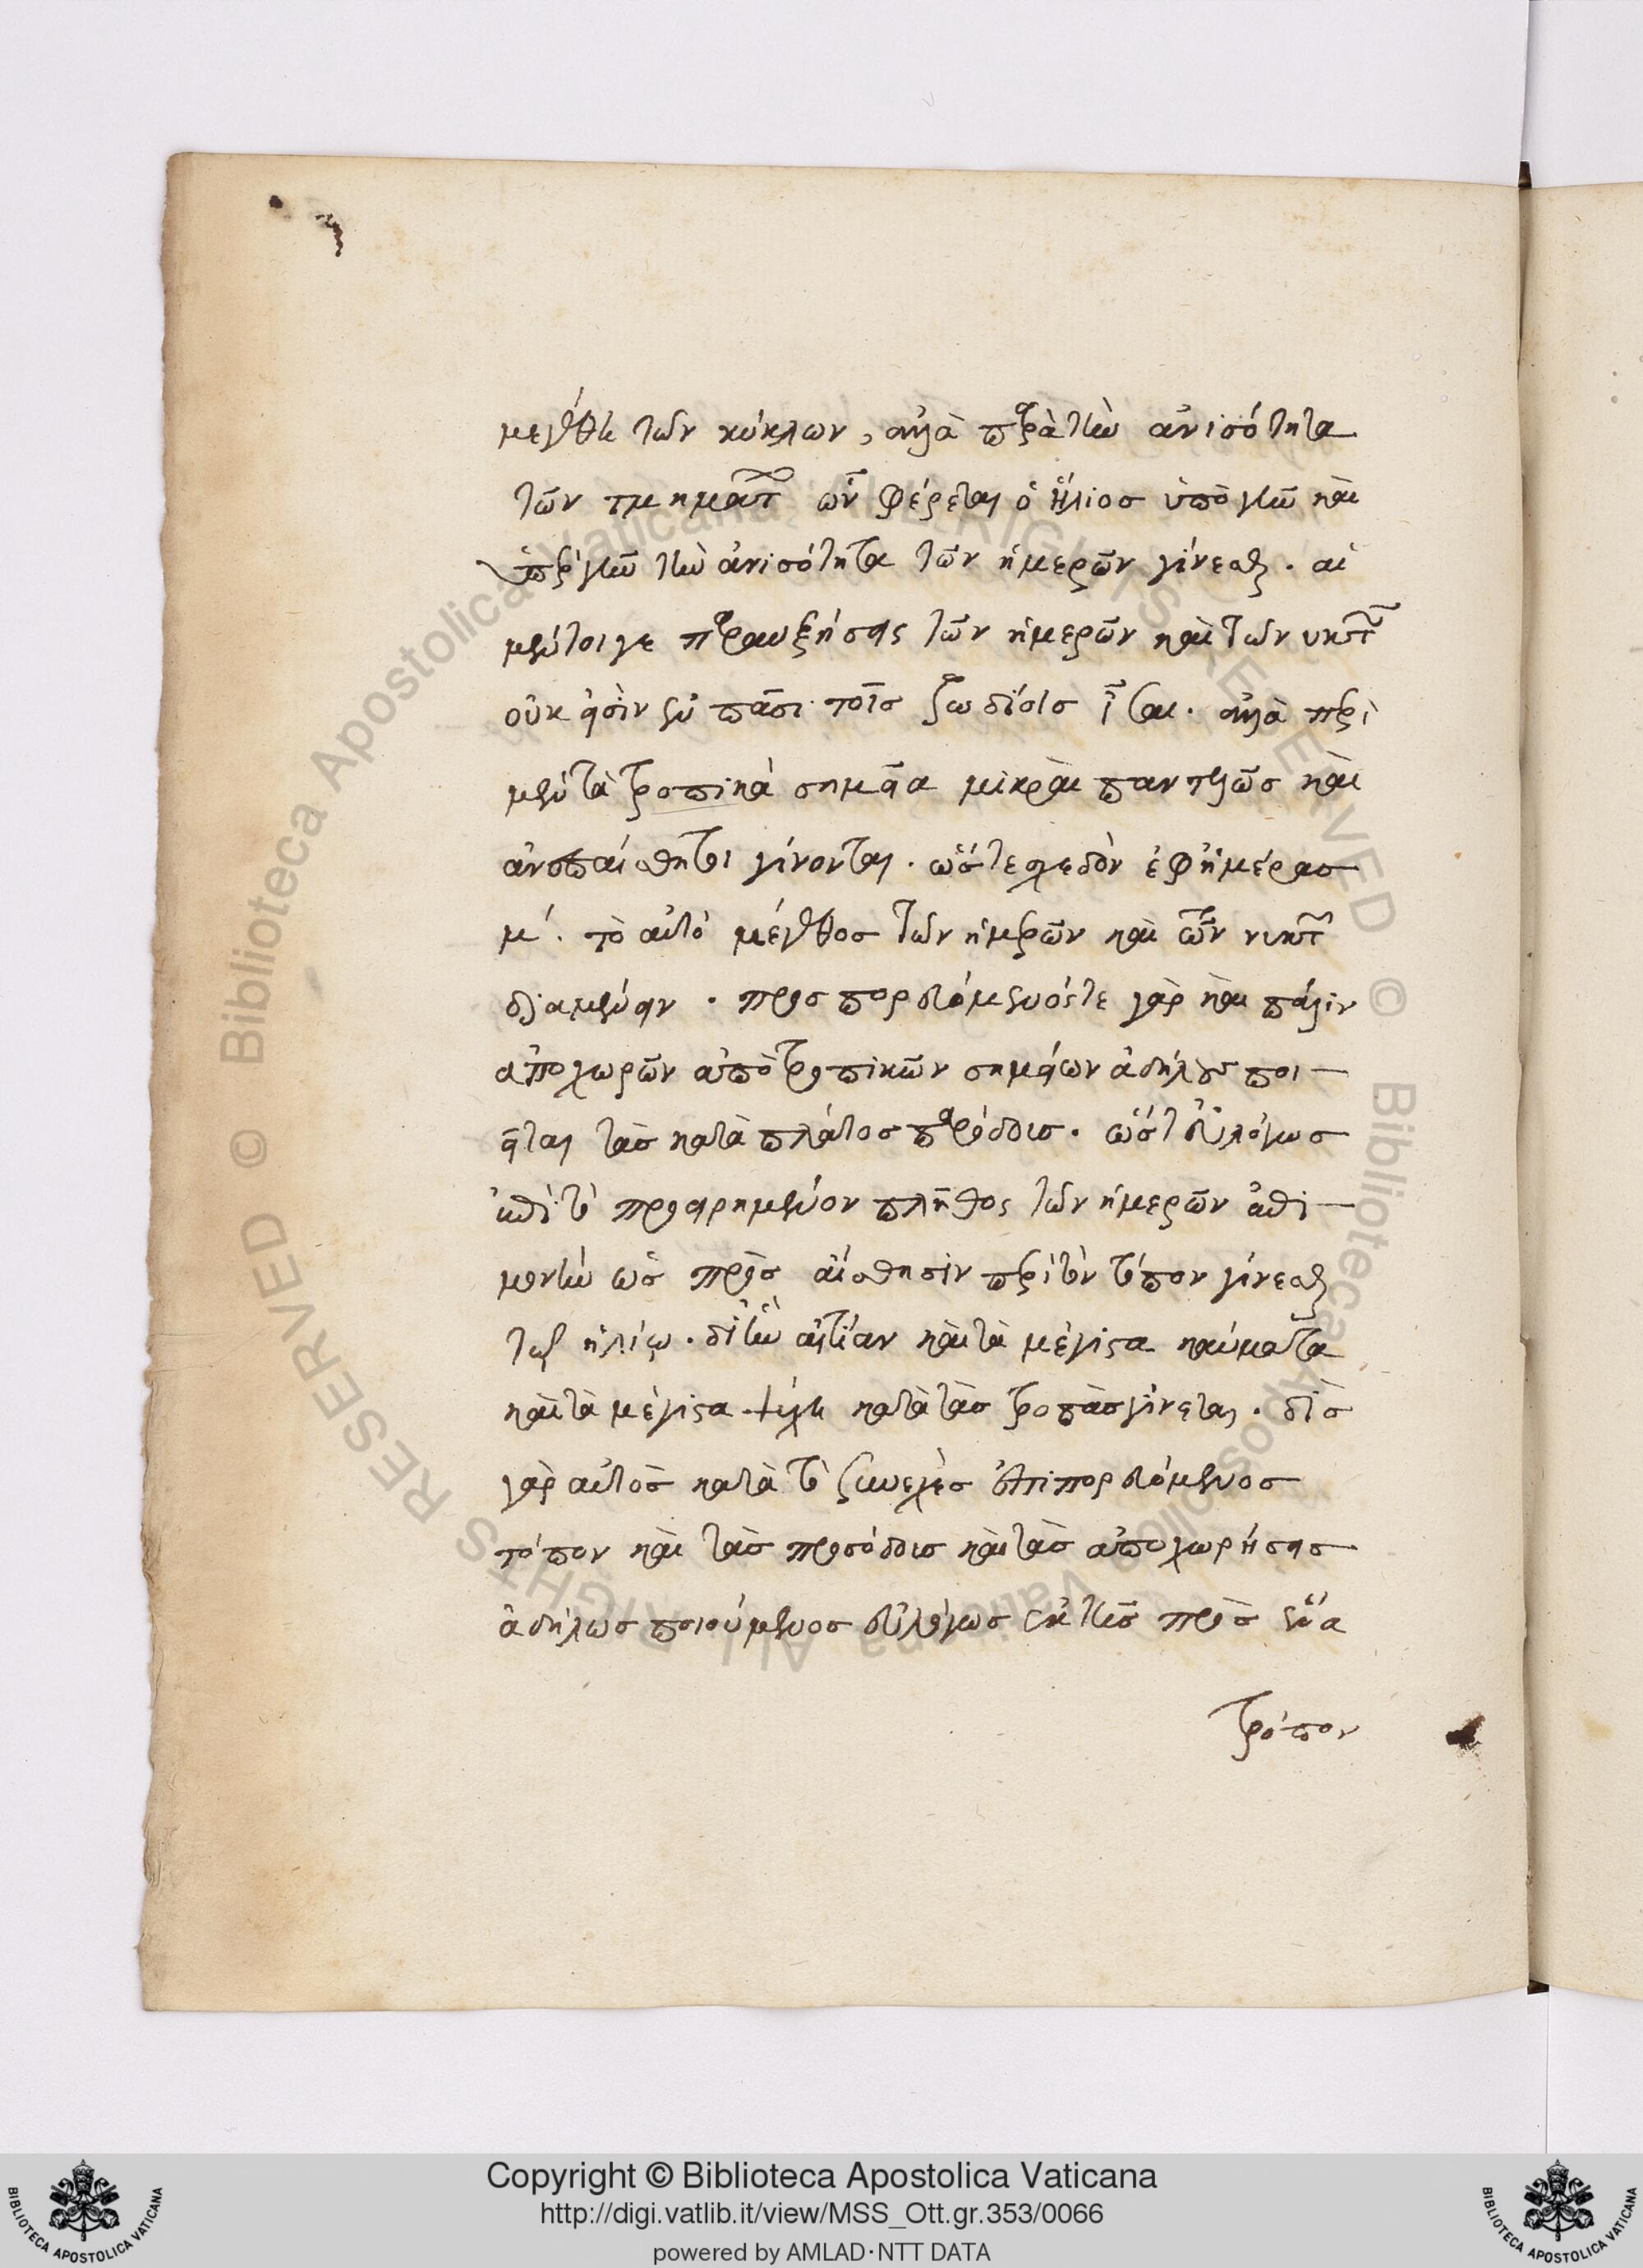 μεγέθη τῶν κύκλων, ἀλλὰ παρὰ τὴν ἀνισότητα
τῶν τμημάτων ὧν φέρεται ὁ ἥλιος ὑπὸ γῆν καὶ
ὑπὲρ γῆν τὴν ἀνισότητα τῶν ἡμερῶν γίνεσθαι. αἱ
μέντοιγε παραυξήσεις τῶν ἡμερῶν καὶ τῶν νυκτῶν
οὐκ εἰσὶν ἐν πᾶσι τοῖς ζωδίοις ἴσαι. ἀλλὰ περὶ
μὲν τὰ τροπικὰ σημεῖα μικραὶ παντελῶς καὶ
ἀνεπαίσθητοι γίνονται. ὥστε σχεδὸν ἐφ' ἡμέρας
μ'. τὸ αὐτὸ μέγεθος τῶν ἡμερῶν καὶ τῶν νυκτῶν
διαμένειν. προσπορευόμενός τε γὰρ καὶ πάλιν
ἀποχωρῶν ἀπὸ τροπικῶν σημείων ἀδήλους ποι-
εῖται τὰς κατὰ πλάτος παρόδους. ὥστ' εὐλόγως
ἐπὶ τὸ προειρημένον πλῆθος τῶν ἡμερῶν ἐπι-
μονὴν ὡς πρὸς αἴσθησιν περὶ τὸν τόπον γίνεσθαι
τῷ ἡλίῳ. δι' ἣν αἰτίαν καὶ τὰ μέγιστα καύματα
καὶ τὰ μέγιστα ψύχη κατὰ τὰς τροπὰς γίνεται. δὶς
γὰρ αὐτὸς κατὰ τὸ συνεχὲς ἐπιπορευόμενος
τόπον καὶ τὰς προσόδους καὶ τὰς ἀποχωρήσεις
ἀδήλως ποιούμενος εὐλόγως ἐκ τῆς πρὸς ἕνα
τρόπον
Copyright © Biblioteca Apostolica Vaticana
http://digi.vatlib.it/view/MSS_Ott.gr.353/0066
powered by AMLAD·NTT DATA